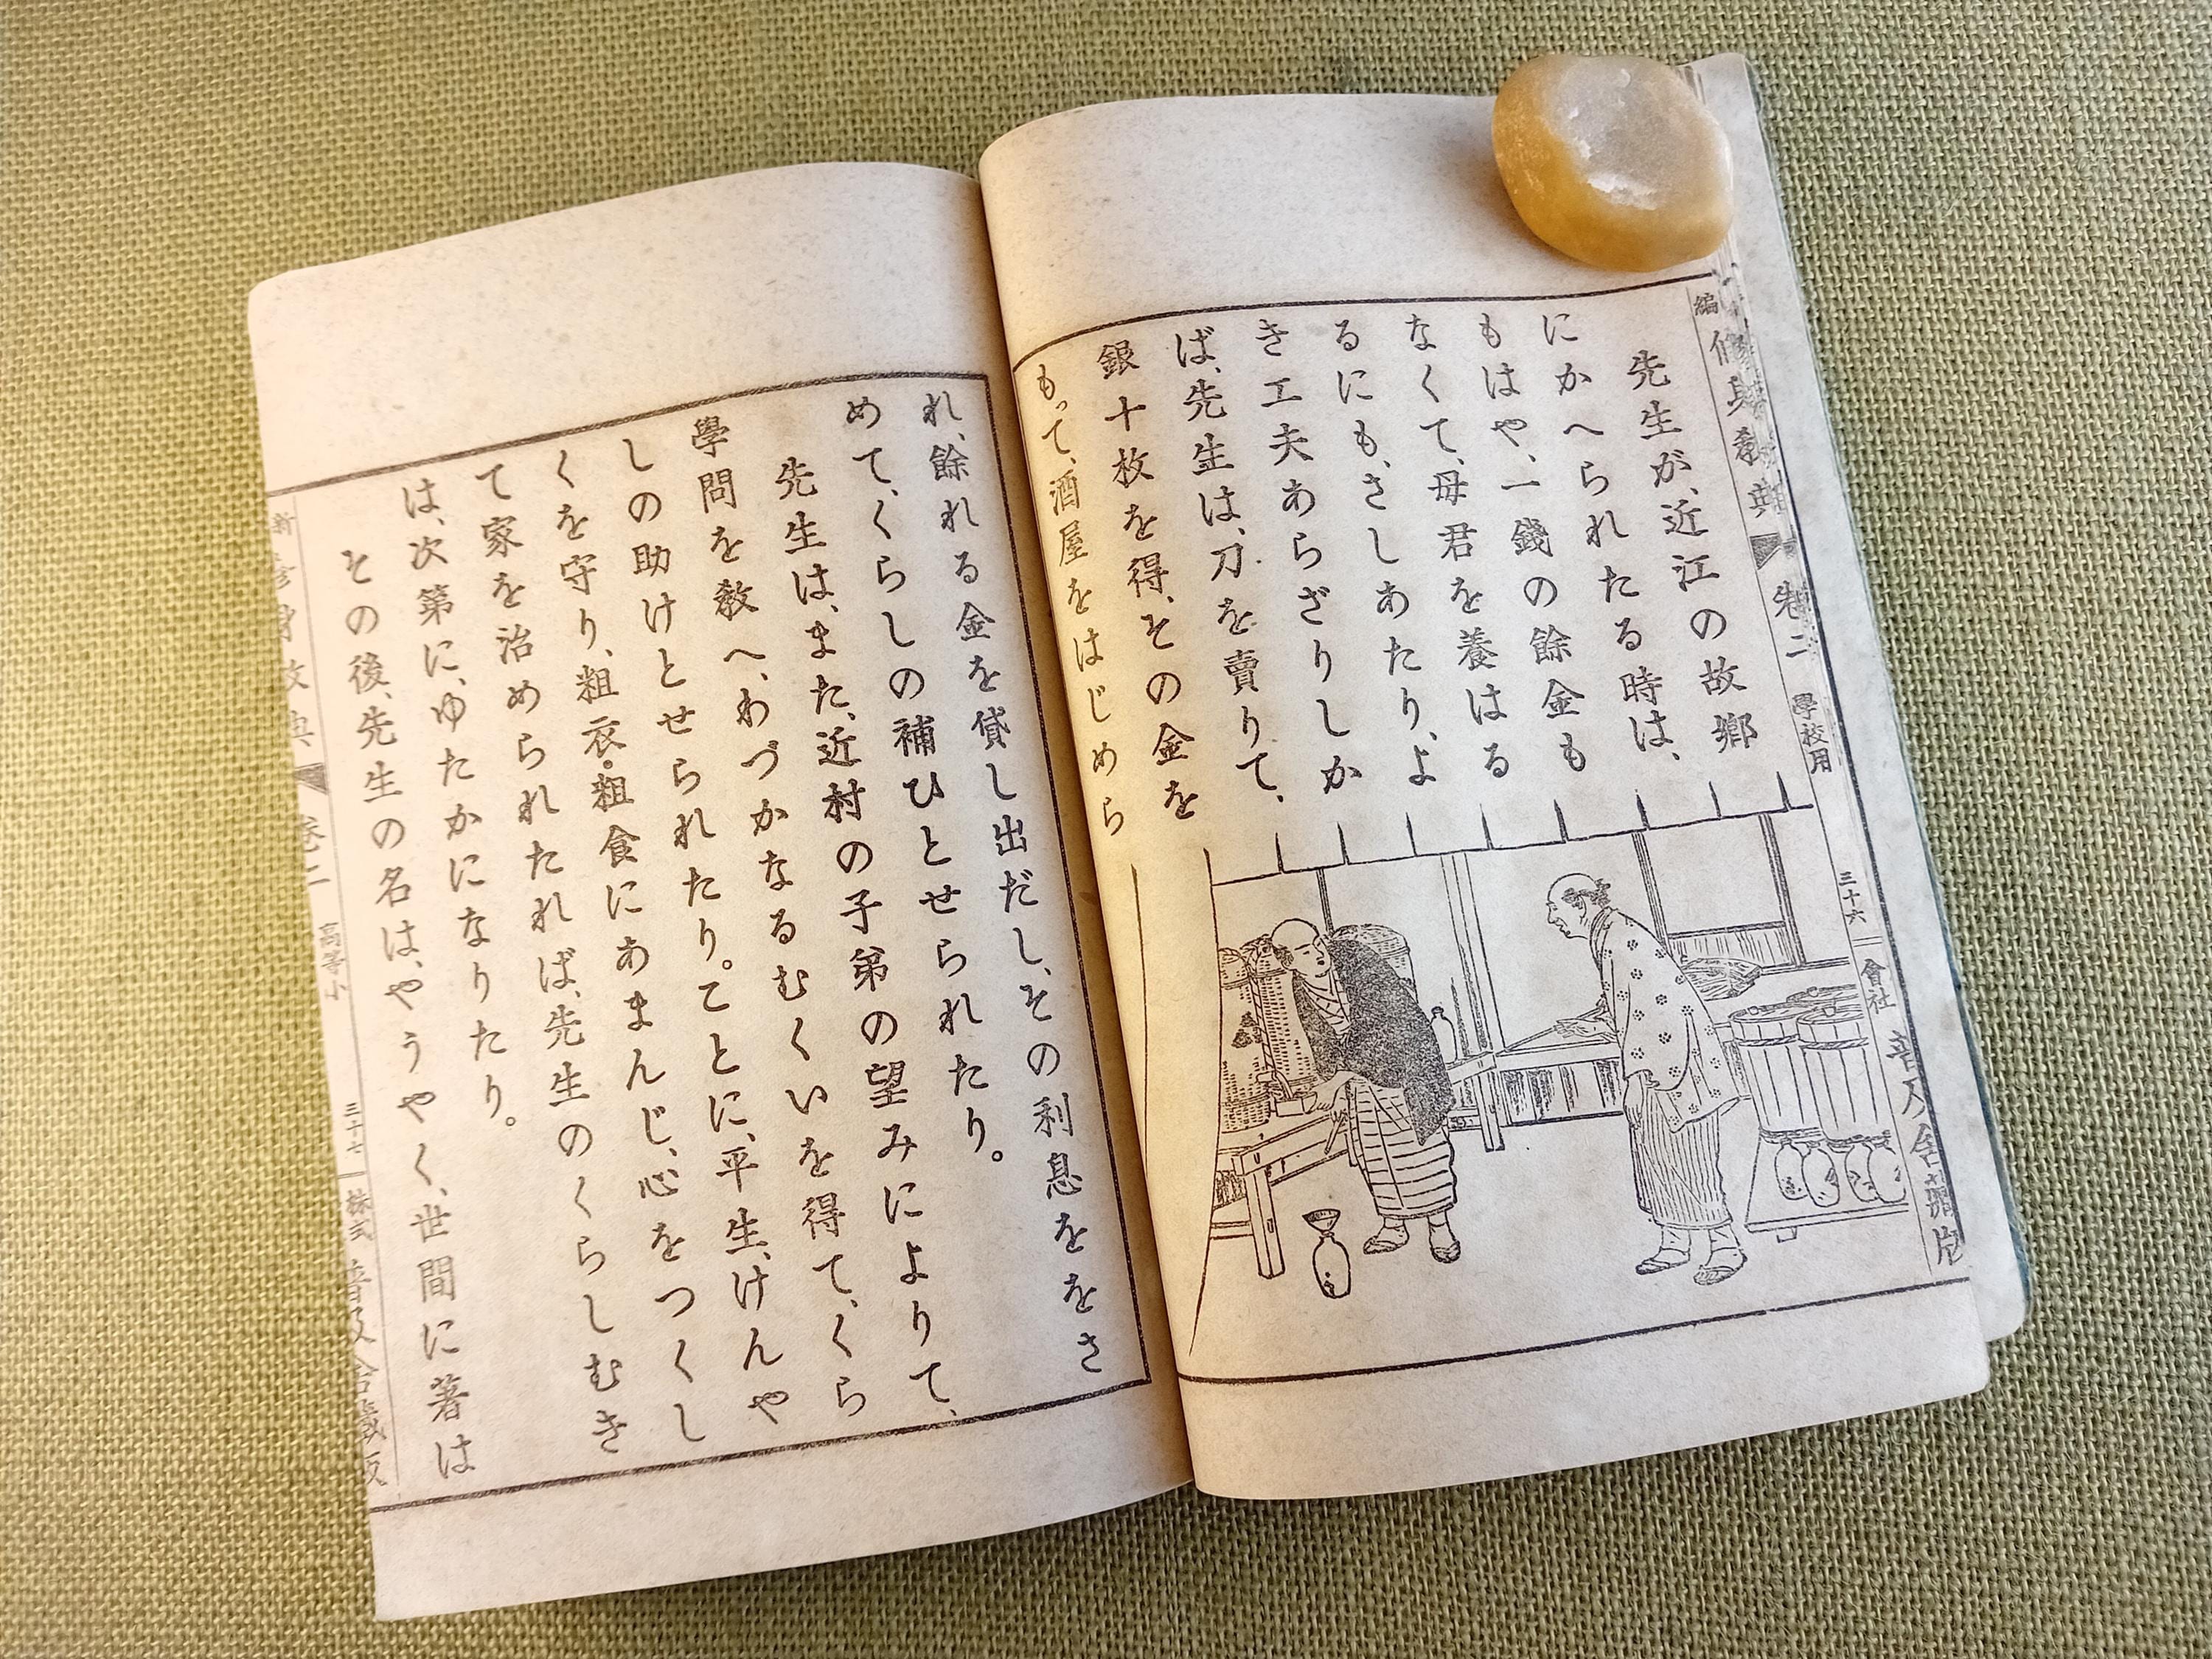 編 修身教典 卷二 學校用 三十六 會社 普及舍藏版
先生が、近江の故鄕
にかへられたる時は、
もはや、一錢の餘金も
なくて、母君を養はる
るにも、さしあたり、よ
き工夫あらざりしか
ば、先生は、刀を賣りて、
銀十枚を得、その金を
もって、酒屋をはじめら
れ、餘れる金を貸し出だし、その利息ををさ
めて、くらしの補ひとせられたり。
先生は、また、近村の子弟の望みによりて、
學問を敎へ、わづかなるむくいを得て、くら
しの助けとせられたり。ことに、平生、けんや
くを守り、粗衣・粗食にあまんじ、心をつくし
て家を治められたれば、先生のくらしむき
は、次第に、ゆたかになりたり。
その後、先生の名は、やうやく、世間に著は
新 修身教典 卷二 高等小 三十七 株式 普及舍藏版